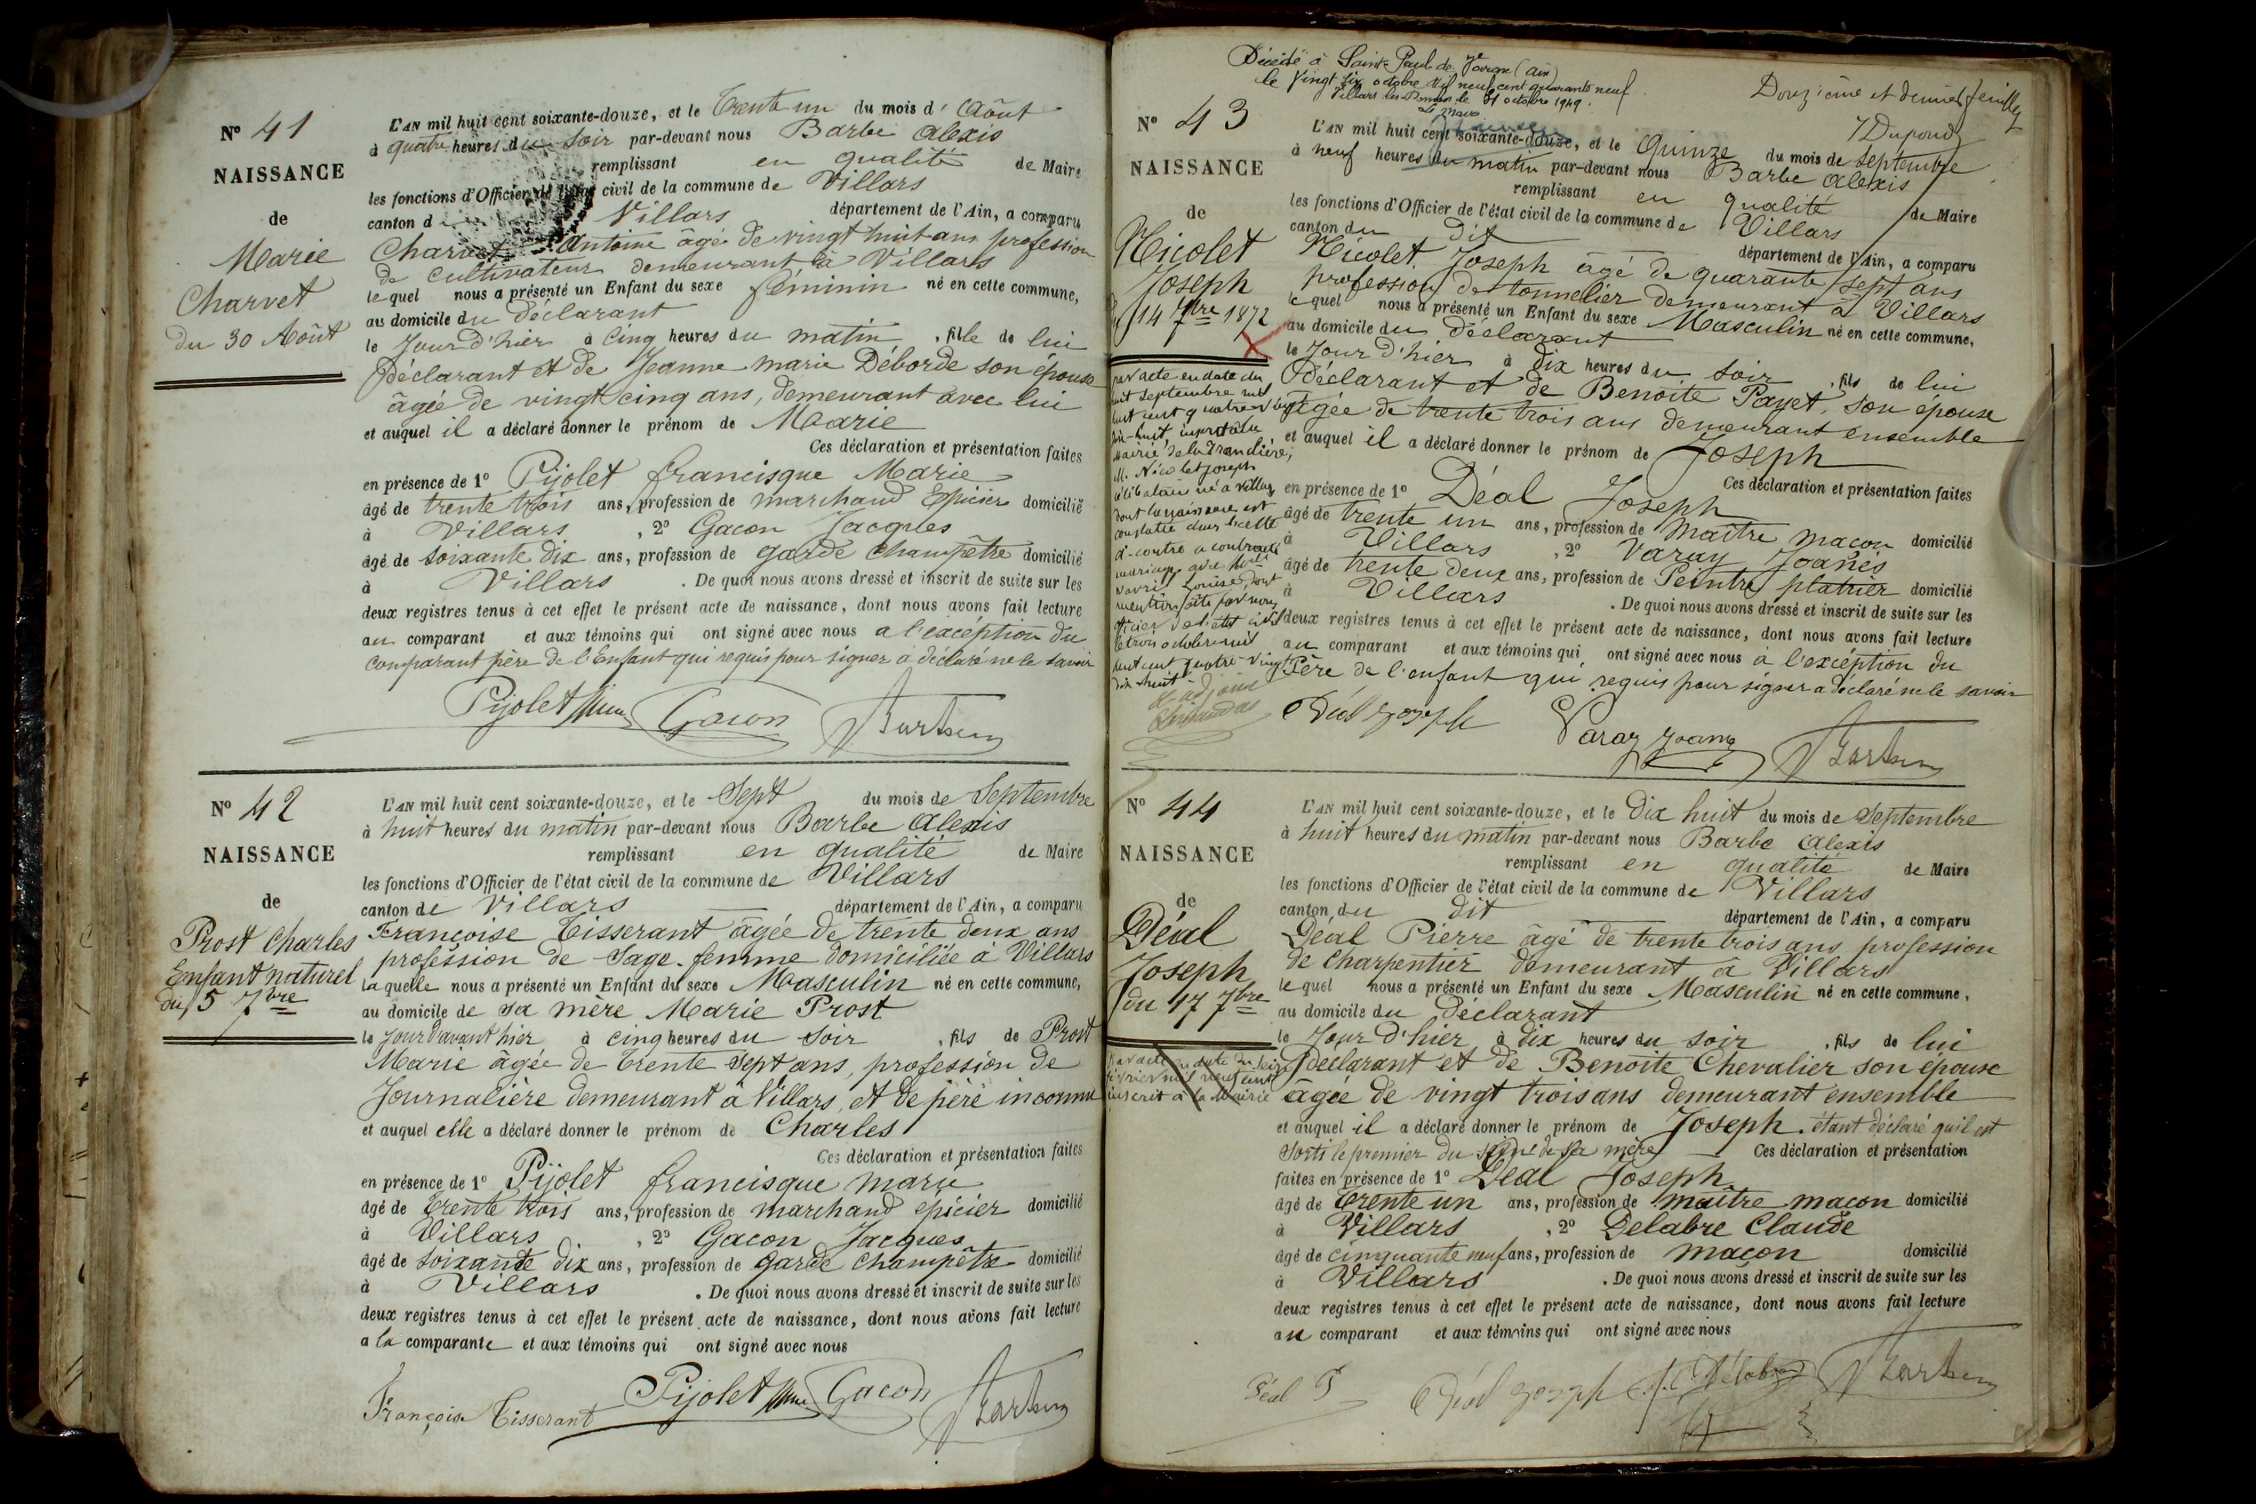 N° 41
NAISSANCE
de
Marie
Charvet
du 30 Août
L'AN mil huit cent soixante-douze, et le Trente un du mois d' Août
à quatre heures du soir par-devant nous Barbe Alexis
remplissant en qualité de Maire
les fonctions d'Officier de l'état civil de la commune de Villars
canton d Villars département de l'Ain, a comparu
Charvet Antoine âgé de vingt huit ans profession
de cultivateur demeurant à Villars
le quel nous a présenté un Enfant du sexe féminin né en cette commune,
au domicile du déclarant
le Jour d'hier à Cinq heures du matin , fille de lui
déclarant et de Jeanne marie Déborde son épouse
âgée de vingt cinq ans, demeurant avec lui
et auquel il a déclaré donner le prénom de Marie
Ces déclaration et présentation faites
en présence de 1° Pijolet francisque Marie
âgé de trente trois ans, profession de marchand Epicier domicilié
à Villars , 2° Gacon Jacques
âgé de soixante dix ans, profession de garde champêtre domicilié
à Villars . De quoi nous avons dressé et inscrit de suite sur les
deux registres tenus à cet effet le présent acte de naissance, dont nous avons fait lecture
au comparant et aux témoins qui ont signé avec nous a l'exception du
Comparant père de l'Enfant qui requis pour signer a déclaré ne le savoir
Pijolet Gacon
N° 42
NAISSANCE
de
Prost Charles
Enfant naturel
du 5 7bre
L'AN mil huit cent soixante-douze, et le Sept du mois de Septembre
à huit heures du matin par-devant nous Barbe Alexis
remplissant en qualité de Maire
les fonctions d'Officier de l'état civil de la commune de Villars
canton de Villars département de l'Ain, a comparu
Françoise Tisserant âgée de trente deux ans
profession de Sage-femme domiciliée à Villars
la quelle nous a présenté un Enfant du sexe Masculin né en cette commune,
au domicile de sa mère Marie Prost
le jour d'avant hier à cinq heures du soir , fils de Prost
Marie âgée de trente sept ans, profession de
Journalière demeurant à Villars, et de père inconnu
et auquel elle a déclaré donner le prénom de Charles
Ces déclaration et présentation faites
en présence de 1° Pijolet francisque marie
âgé de trente trois ans, profession de marchand épicier domicilié
à Villars , 2° Gacon Jacques
âgé de soixante dix ans, profession de garde champêtre domicilié
à Villars . De quoi nous avons dressé et inscrit de suite sur les
deux registres tenus à cet effet le présent acte de naissance, dont nous avons fait lecture
a la comparante et aux témoins qui ont signé avec nous
Françoise Tisserant Pijolet Gacon
Décédé à Saint-Paul de Varax (Ain)
le Vingt six octobre mil neuf cent quarante neuf
Villars les Dombes le 31 octobre 1949.
Le Maire
Douzième et dernier feuillet
Dupond
N° 43
NAISSANCE
de
Nicolet
Joseph
14 7bre 1872
L'AN mil huit cent soixante-douze, et le Quinze du mois de Septembre
à neuf heures du matin par-devant nous Barbe Alexis
remplissant en qualité de Maire
les fonctions d'Officier de l'état civil de la commune de Villars
canton du dit département de l'Ain, a comparu
Nicolet Joseph âgé de quarante sept ans
profession de tonnelier demeurant à Villars
le quel nous a présenté un Enfant du sexe Masculin né en cette commune,
au domicile du Déclarant
le Jour d'hier à dix heures du soir , fils de lui
déclarant et de Benoite Payet, son épouse
âgée de trente trois ans demeurant ensemble
et auquel il a déclaré donner le prénom de Joseph
Ces déclaration et présentation faites
en présence de 1° Déal Joseph
âgé de trente un ans, profession de Maître maçon domicilié
à Villars , 2° Varay Joanès
âgé de trente deux ans, profession de Peintre platrier domicilié
à Villars . De quoi nous avons dressé et inscrit de suite sur les
deux registres tenus à cet effet le présent acte de naissance, dont nous avons fait lecture
au comparant et aux témoins qui ont signé avec nous à l'exception du
Père de l'enfant qui requis pour signer a déclaré ne le savoir
par acte en date du
huit septembre mil
huit cent quatre vingt
dix-huit, inscrit à la
Mairie de la Tranclière,
M. Nicolet Joseph
célibataire né à Villars
dont la naissance est
constatée dans l'acte
ci-contre a contracté
mariage avec
Louise, dont
mention faite par nous
officier de l'état civil
le trois octobre mil
huit cent quatre-vingt
dix huit
L'adjoint
Déal Joseph Varay Joanès
N° 44
NAISSANCE
de
Déal
Joseph
du 17 7bre
L'AN mil huit cent soixante-douze, et le Dix huit du mois de Septembre
à huit heures du matin par-devant nous Barbe Alexis
remplissant en qualité de Maire
les fonctions d'Officier de l'état civil de la commune de Villars
canton du dit département de l'Ain, a comparu
Déal Pierre âgé de trente trois ans profession
de Charpentier demeurant à Villars
le quel nous a présenté un Enfant du sexe Masculin né en cette commune,
au domicile du Déclarant
le Jour d'hier à dix heures du soir , fils de lui
déclarant et de Benoite Chevalier son épouse
âgée de vingt trois ans demeurant ensemble
et auquel il a déclaré donner le prénom de Joseph. étant déclaré qu'il est
sorti le premier du sein de sa mère Ces déclaration et présentation
faites en présence de 1° Déal Joseph
âgé de trente un ans, profession de maître maçon domicilié
à Villars , 2° Delabre Claude
âgé de cinquante neuf ans, profession de maçon domicilié
à Villars . De quoi nous avons dressé et inscrit de suite sur les
deux registres tenus à cet effet le présent acte de naissance, dont nous avons fait lecture
au comparant et aux témoins qui ont signé avec nous
Par acte en date du seize
février mil neuf cent
inscrit à la Mairie
Déal P Déal Joseph Délabre